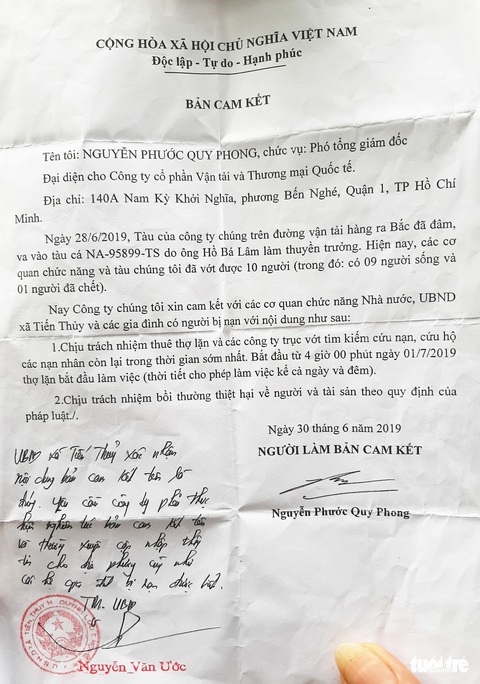 CỘNG HÒA XÃ HỘI CHỦ NGHĨA VIỆT NAM
Độc lập - Tự do - Hạnh phúc
BẢN CAM KẾT
Tên tôi: NGUYỄN PHƯỚC QUY PHONG, chức vụ: Phó tổng giám đốc
Đại diện cho Công ty cổ phần Vận tải và Thương mại Quốc tế.
Địa chỉ: 140A Nam Kỳ Khởi Nghĩa, phường Bến Nghé, Quận 1, TP Hồ Chí
Minh.
Ngày 28/6/2019, Tàu của công ty chúng trên đường vận tải hàng ra Bắc đã đâm,
va vào tàu cá NA-95899-TS do ông Hồ Bá Lâm làm thuyền trưởng. Hiện nay, các cơ
quan chức năng và tàu chúng tôi đã vớt được 10 người (trong đó: có 09 người sống và
01 người đã chết).
Nay Công ty chúng tôi xin cam kết với các cơ quan chức năng Nhà nước, UBND
xã Tiến Thủy và các gia đình có người bị nạn với nội dung như sau:
1.Chịu trách nhiệm thuê thợ lặn và các công ty trục vớt tìm kiếm cứu nạn, cứu hộ
các nạn nhân còn lại trong thời gian sớm nhất. Bắt đầu từ 4 giờ 00 phút ngày 01/7/2019
thợ lặn bắt đầu làm việc (thời tiết cho phép làm việc kể cả ngày và đêm).
2.Chịu trách nhiệm bồi thường thiệt hại về người và tài sản theo quy định của
pháp luật./.
Ngày 30 tháng 6 năm 2019
NGƯỜI LÀM BẢN CAM KẾT
Nguyễn Phước Quy Phong
UBND xã Tiến Thuỷ xác nhận
nội dung bản cam kết trên là
đúng. Yêu cầu công ty phải thực
hiện nghiêm túc bản cam kết trên
và thường xuyên cập nhập thông
tin cho địa phương cũng như
các gia đình bị nạn được biết.
TM. UBND
Nguyễn Văn Ước
tuổi trẻ